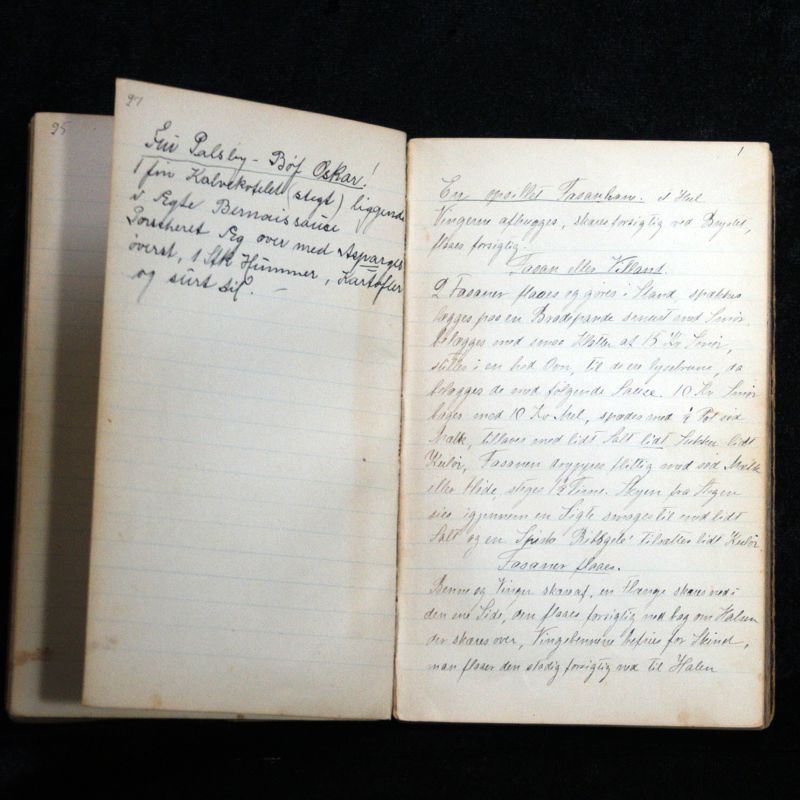 95
97
Fru Palsby - Bøf Oskar!
1 fin Kalvekotelet (stegt) liggende
i Ægte Bernaissauce
Porscheret Æg over med Asparges
øverst, 1 Stk Hummer, Kartofler
og surt sil. -
1
En opsillet Fasanhane. et Hul
Vingerne afhugges, skæres forsigtig ved Brystet,
flaaes forsigtig.
Fasan eller Vildand.
2 Fasaner flaaes og gøres i Stand, spækkes
lægges paa en Bradepande smurt med Smør
belægges med smaa Klatter af 15 Kv Smør,
stilles i en hed Ovn, til de ere lysebrune, da
belægges de med følgende Sauce. 10 Kv. Smør
bages med 10 Kv Mel, spædes med Pot sød
Mælk, tillaves med lidt Salt lidt Sukker lidt
Kulør, Fasanen dryppes flittig med sød Mælk
eller Fløde, steges Time. Skyen fra Stegen
sies igjennem en Sigte smages til med lidt
Salt og en Spisk Ribsgelé tilsættes lidt Kulør.
Fasaner flaaes.
Benne og Vinger skæres af, en Flænge skæres ned i
den ene Side, den flaaes forsigtig ned bag om Halsen
der skæres over, Vingebenene befries for Skind,
man flaaer den stadig forsigtig ned til Halen